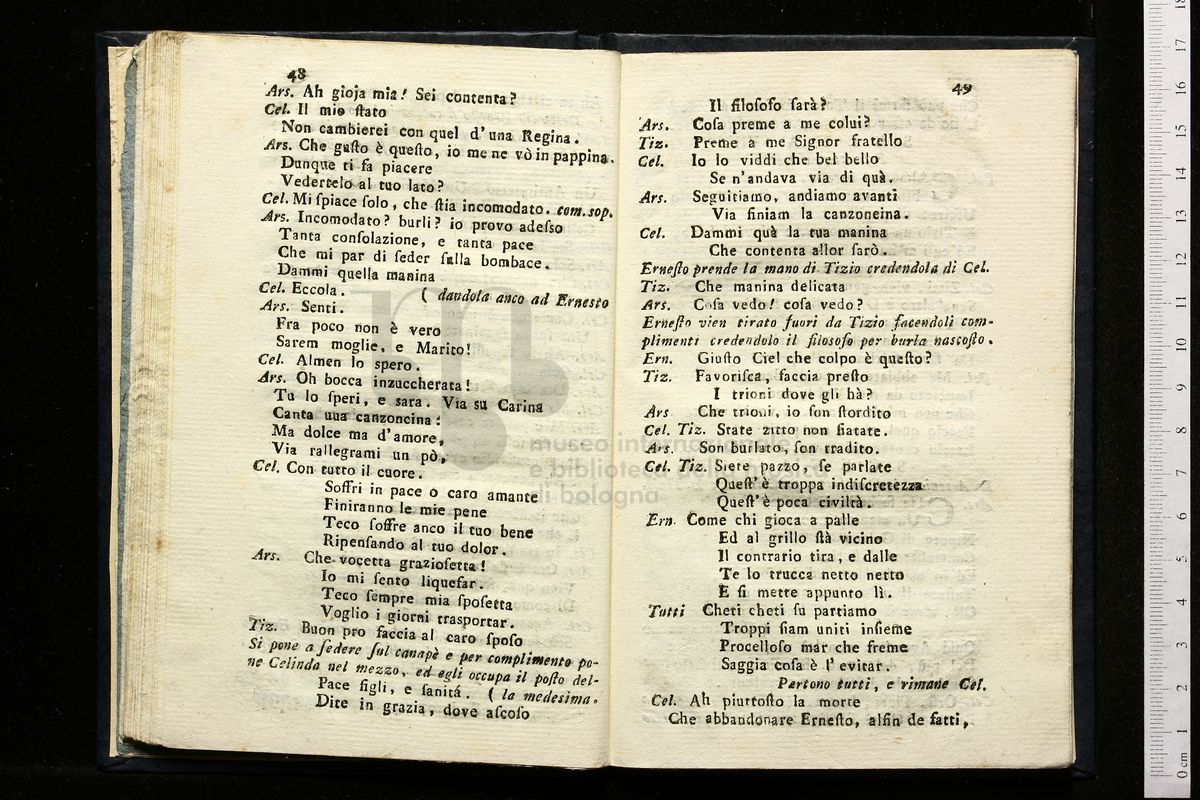 48
Ars. Ah gioja mia! Sei contenta?
Cel. Il mio ſtato
Non cambierei con quel d'una Regina.
Ars. Che guſto è queſto, io me ne vò in pappina.
Dunque ti fa piacere
Vedertelo al tuo lato?
Cel. Mi ſpiace ſolo, che ſtia incomodato. com. sop.
Ars. Incomodato? burli? io provo adeſſo
Tanta conſolazione, e tanta pace
Che mi par di ſeder ſulla bombace.
Dammi quella manina
Cel. Eccola. ( dandola anco ad Erneſto
Ars. Senti.
Fra poco non è vero
Sarem moglie, e Marito!
Cel. Almen lo spero.
Ars. Oh bocca inzuccherata!
Tu lo ſperi, e sara. Via su Carina
Canta uua canzoncina:
Ma dolce ma d'amore,
Via rallegrami un pò,
Cel. Con tutto il cuore.
Soffri in pace o caro amante
Finiranno le mie pene
Teco ſoffre anco il tuo bene
Ripenſando al tuo dolor.
Ars. Che vocetta grazioſetta!
Io mi ſento liquefar.
Teco ſempre mia ſpoſetta
Voglio i giorni traſportar.
Tiz. Buon pro faccia al caro ſpoſo
Si pone a ſedere ſul canapè e per complimento po-
ne Celinda nel mezzo, ed egli occupa il poſto del-
Pace figli, e ſanitá. ( la medesima.
Dite in grazia, dove aſcoſo
49
Il filoſofo ſarà?
Ars. Coſa preme a me colui?
Tiz. Preme a me Signor fratello
Cel. Io lo viddi che bel bello
Se n'andava via di quà.
Ars. Seguitiamo, andiamo avanti
Via finiam la canzoneina.
Cel. Dammi quà la tua manina
Che contenta allor ſarò.
Erneſto prende la mano di Tizio credendola di Cel.
Tiz. Che manina delicata
Ars. Coſa vedo! coſa vedo?
Erneſto vien tirato fuori da Tizio facendoli com-
plimenti credendolo il filoſofo per burla naſcoſto.
Ern. Giuſto Ciel che colpo è queſto?
Tiz. Favoriſca, faccia preſto
I trioni dove gli hà?
Ars Che trioni, io ſon ſtordito
Cel. Tiz. State zitto non fiatate.
Ars. Son burlato, ſon tradito.
Cel. Tiz. Siete pazzo, ſe parlate
Queſt' è troppa indiſcretezza
Queſt' è poca civiltà.
Ern. Come chi gioca a palle
Ed al grillo ſtà vicino
Il contrario tira, e dalle
Te lo trucca netto netto
E ſi mette appunto lì.
Tutti Cheti cheti ſu partiamo
Troppi ſiam uniti inſieme
Procelloſo mar che freme
Saggia coſa è l'evitar.
Partono tutti, e rimane Cel.
Cel. Ah piuttoſto la morte
Che abbandonare Erneſto, alfin de fatti,
museo internazionale
e biblioteca della musica
di bologna
0 cm 1 2 3 4 5 6 7 8 9 10 11 12 13 14 15 16 17 18